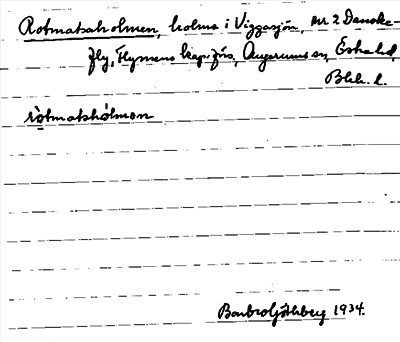 Rotmatsholmen, holme i Viggasjön, nr 2 Danske-
fly, Flymens kap. förs., Augerums sn, Östra hd,
Blek. l.
rotmatshòlmen
Barbro Göthberg 1934.